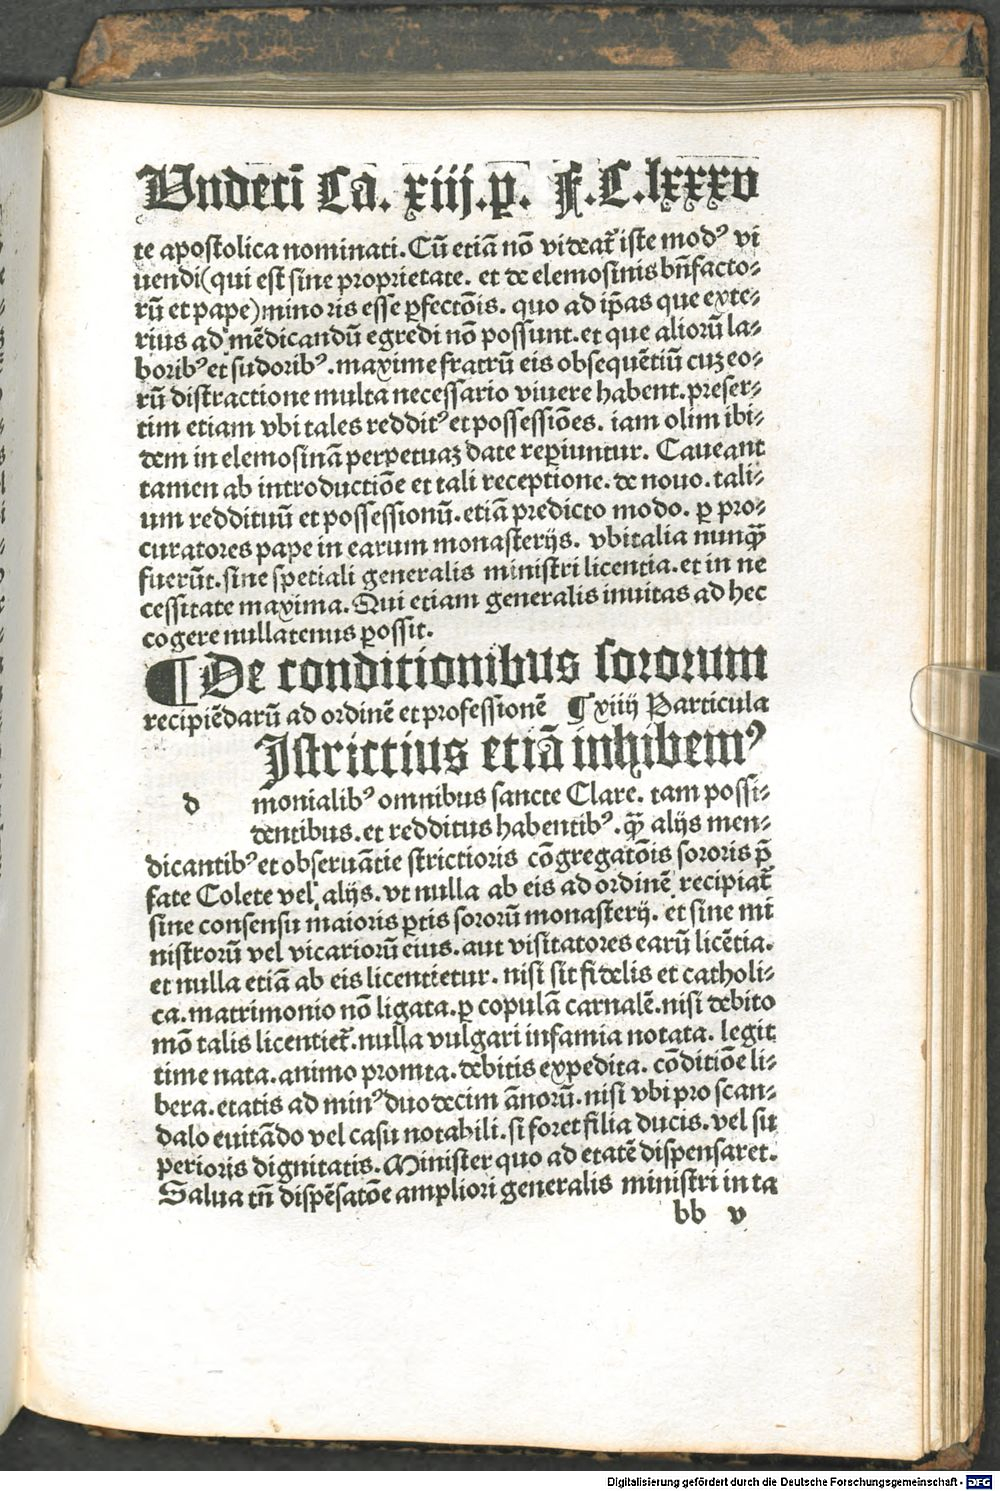 Vndeci̅ Ca. xiij.p. F.C.lxxxv
te apostolica nominati. Cu̅ etia̅ no̅ videat᷑ iste modꝰ vi
uendi(qui est sine proprietate. et de elemosinis bn̅facto⸗
ru̅ et pape)minoris esse ꝑfecto̅is. quo ad ip̅as que exte⸗
rius ad me̅dicandu̅ egredi no̅ possunt. et que alioru̅ la⸗
boribꝰ et sudoribꝰ. maxime fratru̅ eis obseque̅tiu̅ cuz eo⸗
ru̅ distractione multa necessario viuere habent. preser⸗
tim etiam vbi tales redditꝰ et possessio̅es. iam olim ibi⸗
dem in elemosina̅ perpetuaz date reꝑiuntur. Caueant
tamen ab introductio̅e et tali receptione. de nouo. tali⸗
um reddituu̅ et possessionu̅. etia̅ predicto modo. ꝑ pro⸗
curatores pape in earum monasterijs. vbi talia nunq̅ꝫ
fueru̅t. sine spetiali generalis ministri licentia. et in ne
cessitate maxima. Qui etiam generalis inuitas ad hec
cogere nullatenus ꝑossit.
¶ De conditionibus sororum
recipie̅daru̅ ad ordine̅ et professione̅ ¶ xiiij Particula
Istrictius etia̅ inhibemꝰ
d monialibꝰ omnibus sancte Clare. tam possi⸗
dentibus. et redditus habentibꝰ. q̅ꝫ alijs men⸗
dicantibꝰ et obserua̅tie strictioris co̅gregato̅is sororis p̅
fate Colete vel alijs. vt nulla ab eis ad ordine̅ recipiat᷑
sine consensu maioris ꝑtis sororu̅ monasterij. et sine mi
nistroru̅ vel vicarioru̅ eius. aut visitatores earu̅ lice̅tia.
et nulla etia̅ ab eis licentietur. nisi sit fidelis et catholi⸗
ca. matrimonio no̅ ligata. ꝑ copula̅ carnale̅. nisi debito
mo̅ talis licentiet᷑. nulla vulgari infamia notata. legit
time nata. animo promta. debitis expedita. co̅ditio̅e li⸗
bera. etatis ad minꝰ duodecim a̅noru̅. nisi vbi pro scan⸗
dalo euita̅do vel casu notabili. si foret filia ducis. vel su
perioris dignitatis. Minister quo ad etate̅ dispensaret.
Salua tn̅ dispe̅sato̅e ampliori generalis ministri in ta
bb v
Digitalisierung gefördert durch die Deutsche Forschungsgemeinschaft - DFG